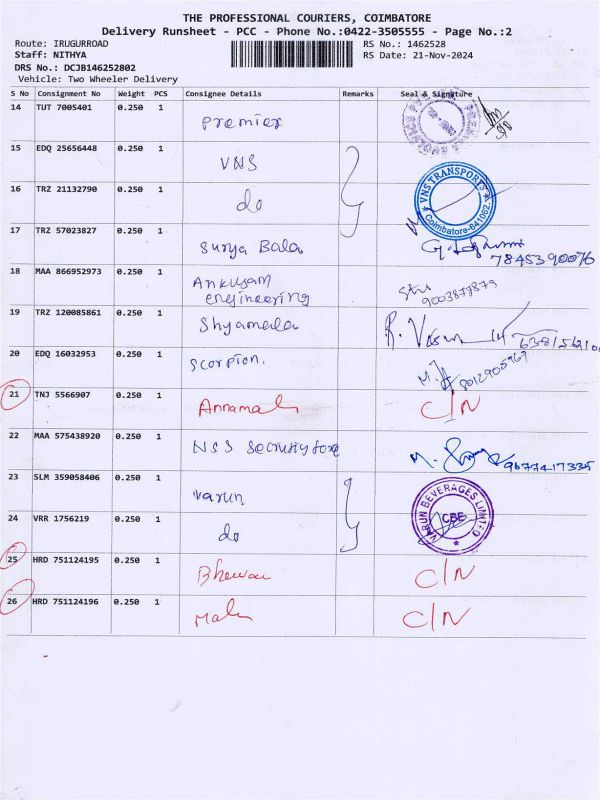 THE PROFESSIONAL COURIERS, COIMBATORE
Delivery Runsheet - PCC - Phone No.:0422-3505555 - Page No.:2
Route: IRUGURROAD
RS No.: 1462528
Staff: NITHYA
RS Date: 21-Nov-2024
DRS No.: DCJB146252802
Vehicle: Two Wheeler Delivery
S No Consignment No Weight PCS Consignee Details Remarks Seal & Signature
14 TUT 7005401 0.250 1 Premier
15 EDQ 25656448 0.250 1 VNS
16 TRZ 21132790 0.250 1 do VNS TRANSPORTS Coimbatore-641062
17 TRZ 57023827 0.250 1 Surya Bala 7845390076
18 MAA 866952973 0.250 1 Ankujam engineering 9003877879
19 TRZ 120085861 0.250 1 Shyamala
20 EDQ 16032953 0.250 1 Scorpion. 8012905969
21 TNJ 5566907 0.250 1 Annamali C/N
22 MAA 575438920 0.250 1 NSS Security force 9677417335
23 SLM 359058406 0.250 1 Varun
24 VRR 1756219 0.250 1 do VARUN BEVERAGES LIMITED CBE
25 HRD 751124195 0.250 1 C/N
26 HRD 751124196 0.250 1 C/N